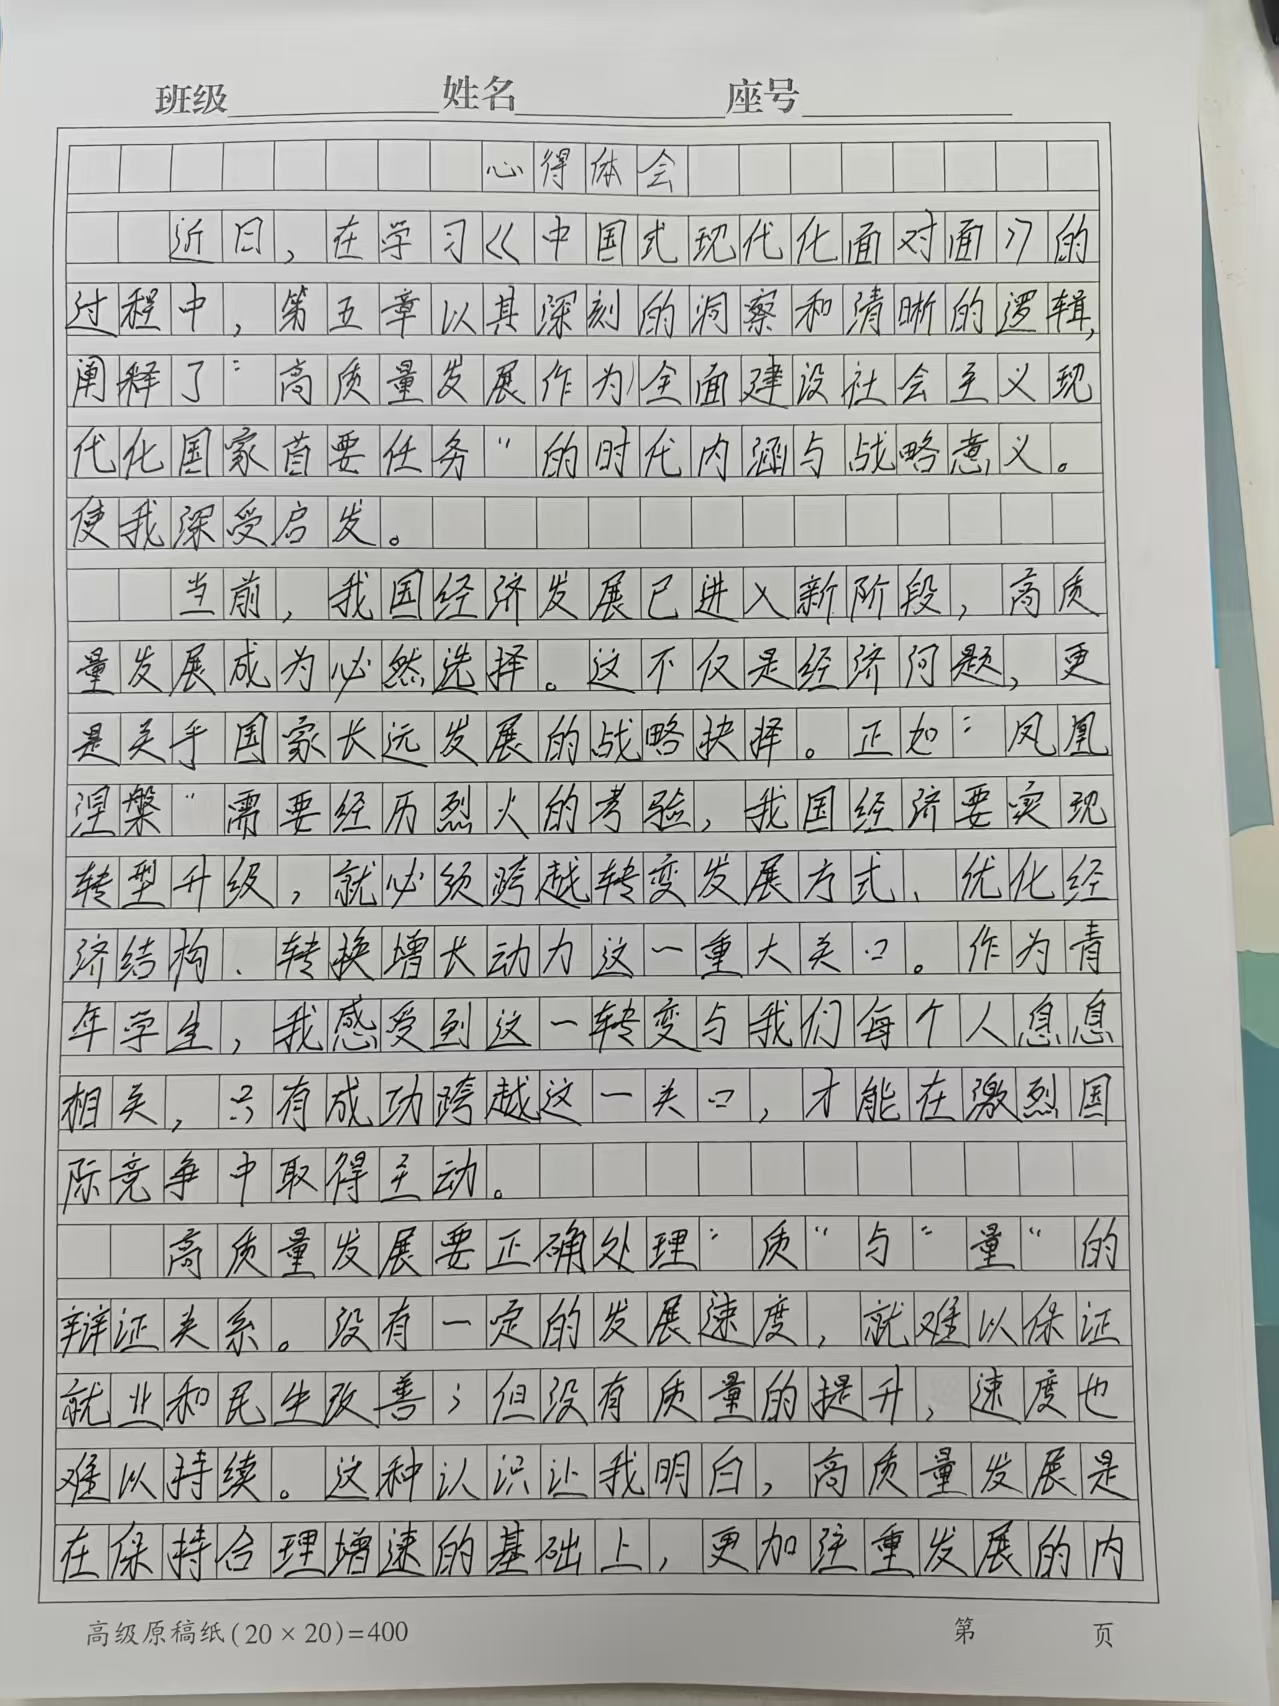 班级 姓名 座号
心得体会
近日，在学习《中国式现代化面对面》的
过程中，第五章以其深刻的洞察和清晰的逻辑，
阐释了“高质量发展作为全面建设社会主义现
代化国家首要任务”的时代内涵与战略意义。
使我深受启发。
当前，我国经济发展已进入新阶段，高质
量发展成为必然选择。这不仅是经济问题，更
是关乎国家长远发展的战略抉择。正如“凤凰
涅槃”需要经历烈火的考验，我国经济要实现
转型升级，就必须跨越转变发展方式、优化经
济结构、转换增长动力这一重大关口。作为青
年学生，我感受到这一转变与我们每个人息息
相关，只有成功跨越这一关口，才能在激烈国
际竞争中取得主动。
高质量发展要正确处理“质”与“量”的
辩证关系。没有一定的发展速度，就难以保证
就业和民生改善；但没有质量的提升，速度也
难以持续。这种认识让我明白，高质量发展是
在保持合理增速的基础上，更加注重发展的内
高级原稿纸(20×20)=400 第 页